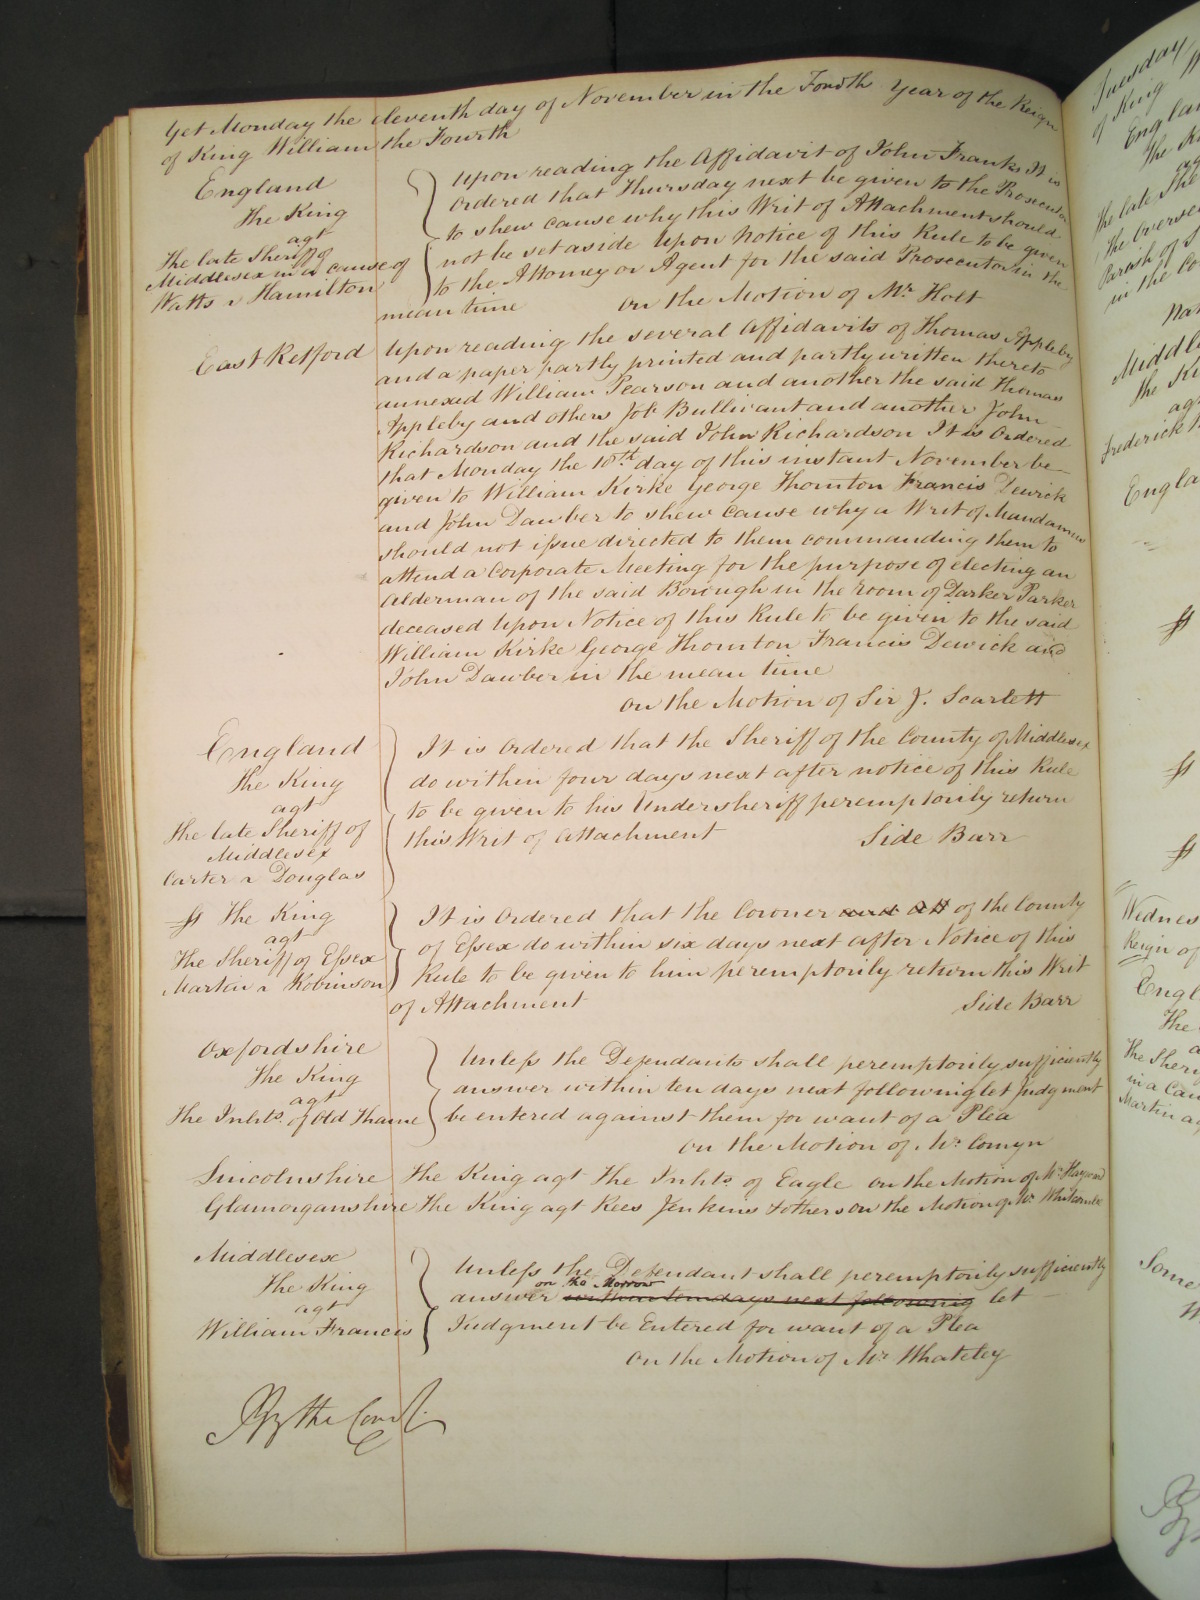 Yet Monday the eleventh day of November in the Fourth Year of the Reign
of King William the Fourth
England
The King
agt
The late Sheriff of
Middlesex in a cause of
Watts v Hamilton
Upon reading the Affidavit of John Franks It is
ordered that Thursday next be given to the Prosecutor
to shew cause why this Writ of Attachment should
not be set aside Upon Notice of this Rule to be given
to the Attorney or Agent for the said Prosecutor in the
mean time on the Motion of Mr. Holt
East Retford
Upon reading the several affidavits of Thomas Appleby
and a paper partly printed and partly written thereto
annexed William Pearson and another the said Thomas
Appleby and others Job Bullivant and another John
Richardson and the said John Richardson It is Ordered
that Monday the 18th day of this instant November be
given to William Kirke George Thornton Francis Dewick
and John Dawber to shew cause why a Writ of Mandamus
should not issue directed to them commanding them to
attend a Corporate Meeting for the purpose of electing an
Alderman of the said Borough in the room of Darker Parker
deceased Upon Notice of this Rule to be given to the said
William Kirke George Thornton Francis Dewick and
John Dawber in the mean time
on the Motion of Sir J. Scarlett
England
The King
agt
The late Sheriff of
Middlesex
Carter v Douglas
It is Ordered that the Sheriff of the County of Middlesex
do within four days next after notice of this Rule
to be given to his Undersheriff peremptorily return
this Writ of Attachment Side Barr
The King
agt
The Sheriff of Essex
Martin v Robinson
It is Ordered that the Coroner and Att of the County
of Essex do within six days next after Notice of this
Rule to be given to him peremptorily return this Writ
of Attachment Side Barr
Oxfordshire
The King
agt
The Inhts. of Old Thame
Unless the Defendants shall peremptorily sufficiently
answer within ten days next following let Judgment
be entered against them for want of a Plea
on the Motion of Mr. Comyn
Lincolnshire The King agt The Inhts. of Eagle on the Motion of Mr. Hayward
Glamorganshire The King agt Rees Jenkins & others on the Motion of Mr. Whitcombe
Middlesex
The King
agt
William Francis
Unless the Defendant shall peremptorily sufficiently
on the Morrow
answer within ten days next following let
Judgment be Entered for want of a Plea
on the Motion of Mr. Whateley
By the Court
Tuesday
of King W
The
agt
The late She
The Overse
Parish of S
in the Co
The Ki
agt
Frederick
Engla
Wednes
Reign of
Engl
The
The Sher
in a Cau
Martin ag
Some